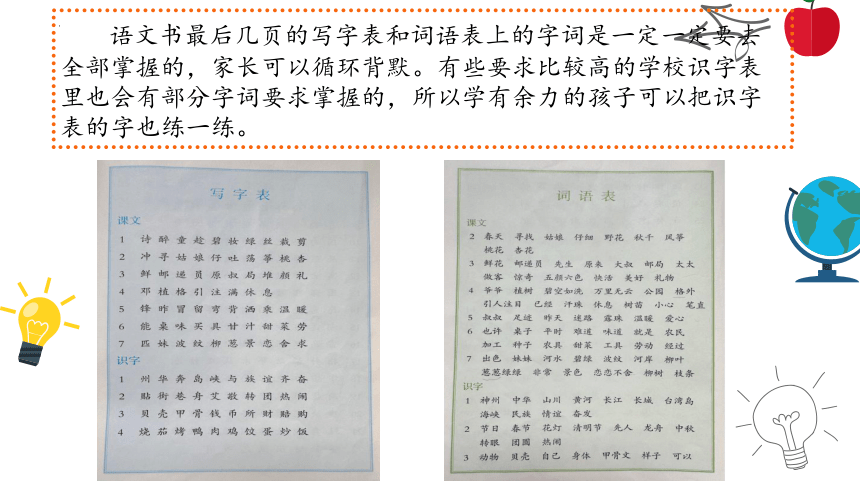 语文书最后几页的写字表和词语表上的字词是一定一定要去
全部掌握的，家长可以循环背默。有些要求比较高的学校识字表
里也会有部分字词要求掌握的，所以学有余力的孩子可以把识字
表的字也练一练。
写 字 表
课文
1 诗 醉 童 趁 碧 妆 绿 丝 裁 剪
2 冲 寻 姑 娘 仔 吐 荡 筝 桃 杏
3 鲜 邮 递 员 原 叔 局 堆 颜 礼
4 邓 植 格 引 注 满 休 息
5 锋 昨 冒 留 弯 背 洒 乘 温 暖
6 能 桌 味 买 具 甘 汁 甜 菜 劳
7 匹 妹 波 纹 柳 葱 景 恋 舍 求
识字
1 州 华 奔 岛 峡 与 族 谊 齐 奋
2 贴 街 巷 舟 艾 敬 转 团 热 闹
3 贝 壳 甲 骨 钱 币 所 财 赔 购
4 烧 茄 烤 鸭 肉 鸡 饺 蛋 炒 饭
词 语 表
课文
2 春天 寻找 姑娘 仔细 野花 秋千 风筝
桃花 杏花
3 鲜花 邮递员 先生 原来 大叔 邮局 太太
做客 惊奇 五颜六色 快活 美好 礼物
4 爷爷 植树 碧空如洗 万里无云 公园 格外
引人注目 已经 汗珠 休息 树苗 小心 笔直
5 叔叔 足迹 昨天 迷路 露珠 温暖 爱心
6 也许 桌子 平时 难道 味道 就是 农民
加工 种子 农具 甜菜 工具 劳动 经过
7 出色 妹妹 河水 碧绿 波纹 河岸 柳叶
葱葱绿绿 非常 景色 恋恋不舍 柳树 枝条
识字
1 神州 中华 山川 黄河 长江 长城 台湾岛
海峡 民族 情谊 奋发
2 节日 春节 花灯 清明节 先人 龙舟 中秋
转眼 团圆 热闹
3 动物 贝壳 自己 身体 甲骨文 样子 可以